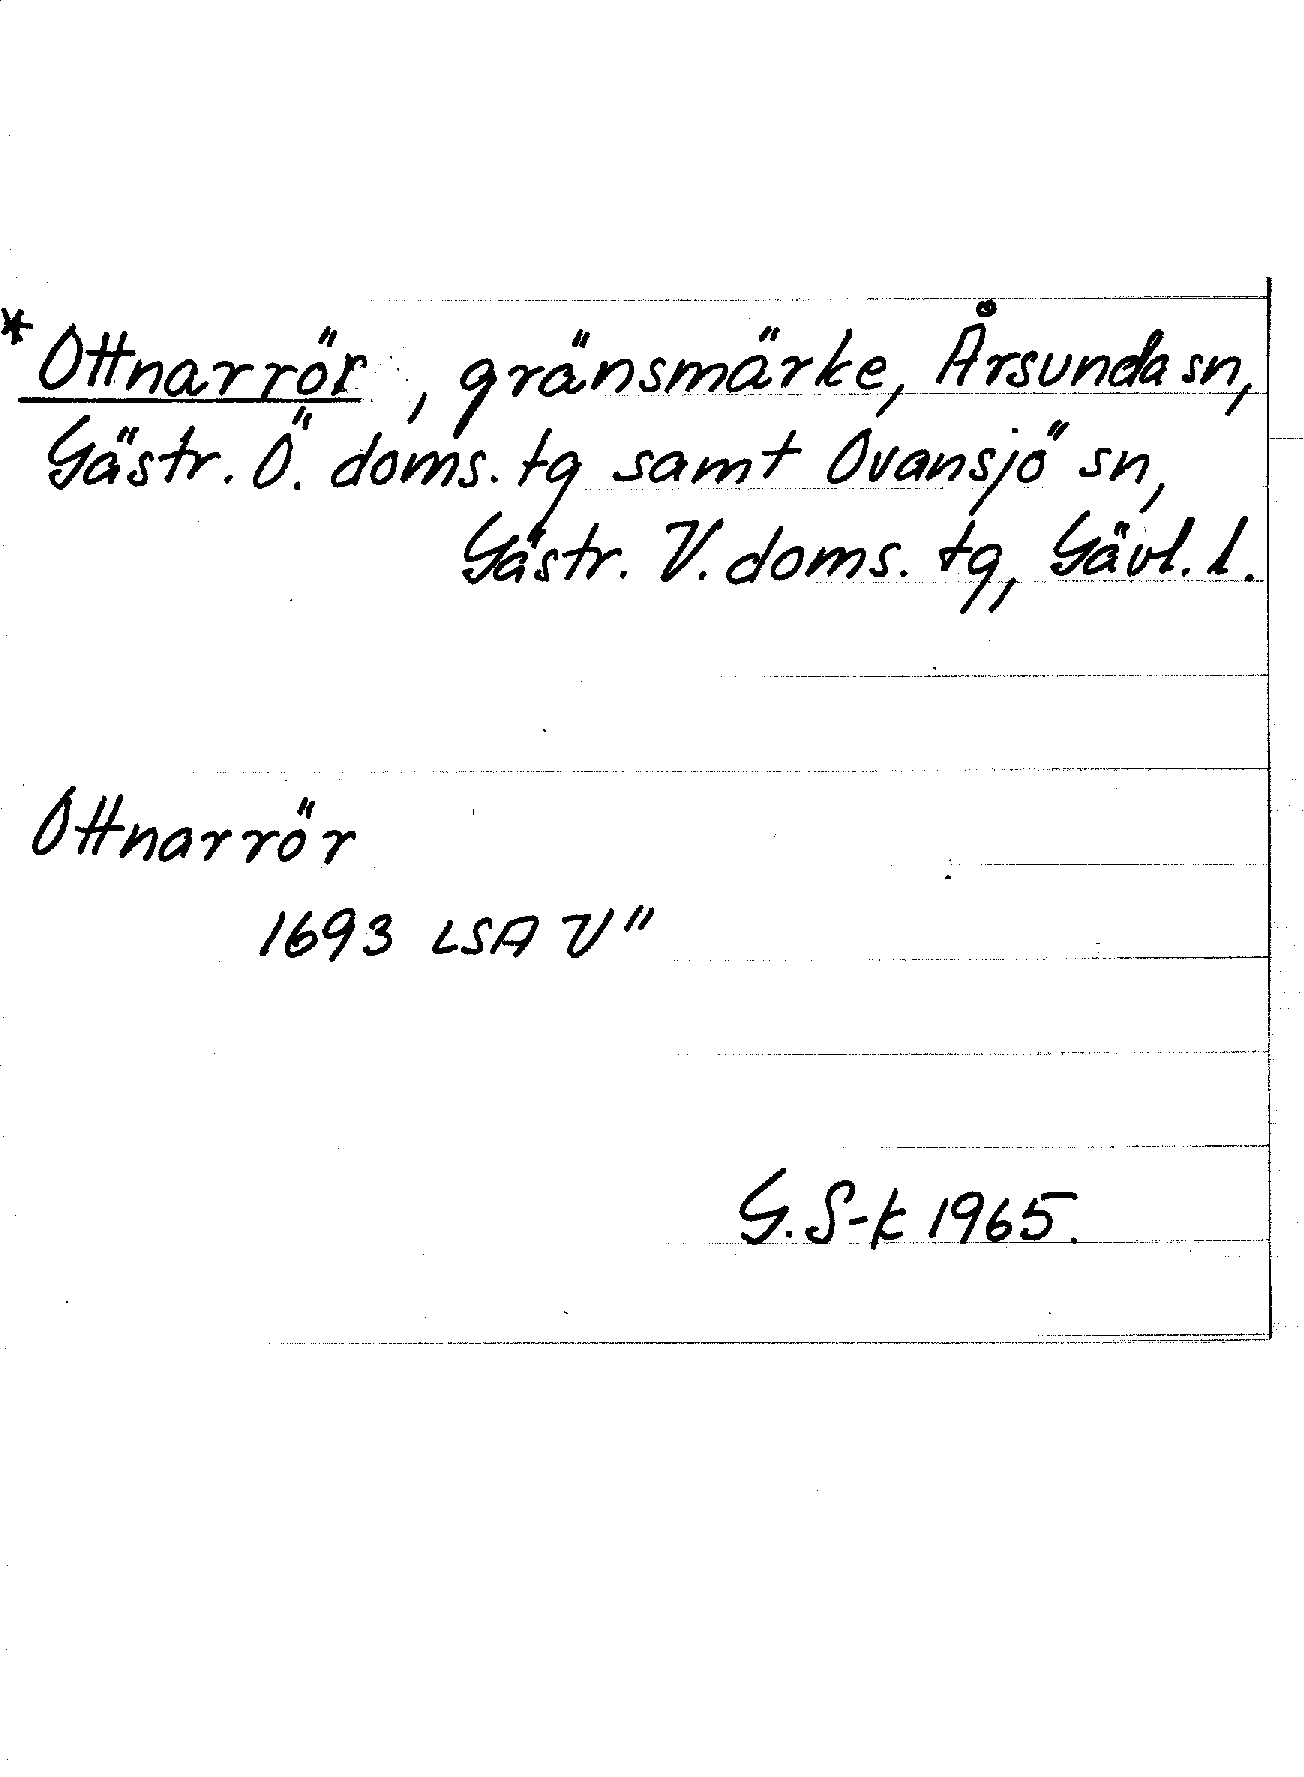 *Ottnarrör, gränsmärke, Årsunda sn,
Gästr. Ö. doms. tg samt Ovansjö sn,
Gästr. V. doms. tg, Gävl. l.
Ottnarrör
1693 LSA V"
G. S-k 1965.